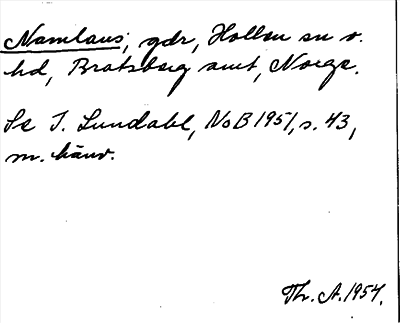 Namlaus, gdr, Hollen sn o.
hd, Bratsberg amt, Norge.
Se I. Lundahl, NoB 1951, s. 43,
m. hänv.
Th. A. 1954.